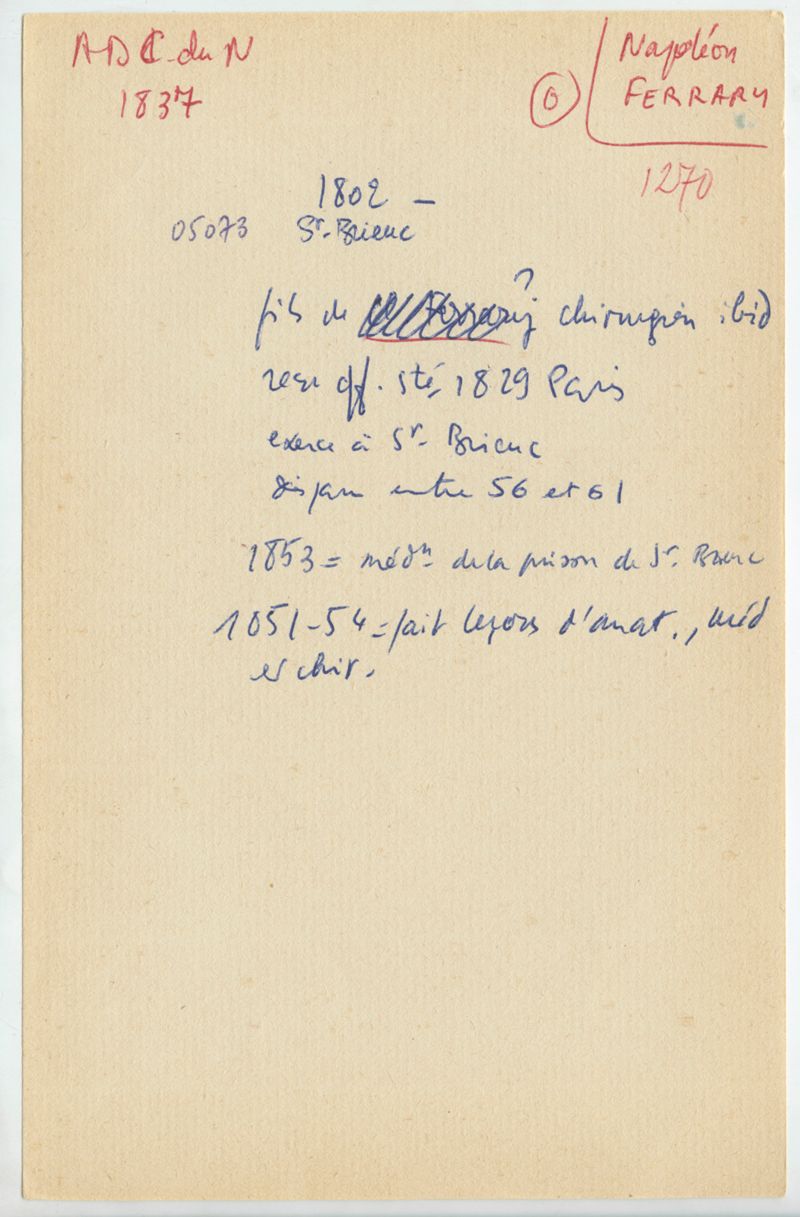 ADC-du N
1837
Napoléon
FERRARY
0
1270
1802 -
05073 St-Brieuc
?
fils de chirurgien ibid
reçu off. sté 1829 Paris
exerce à St-Brieuc
disparu entre 56 et 61
1853 = médn de la prison de St. Brieuc
1851-54 = fait leçons d'anat., méd
et chir.